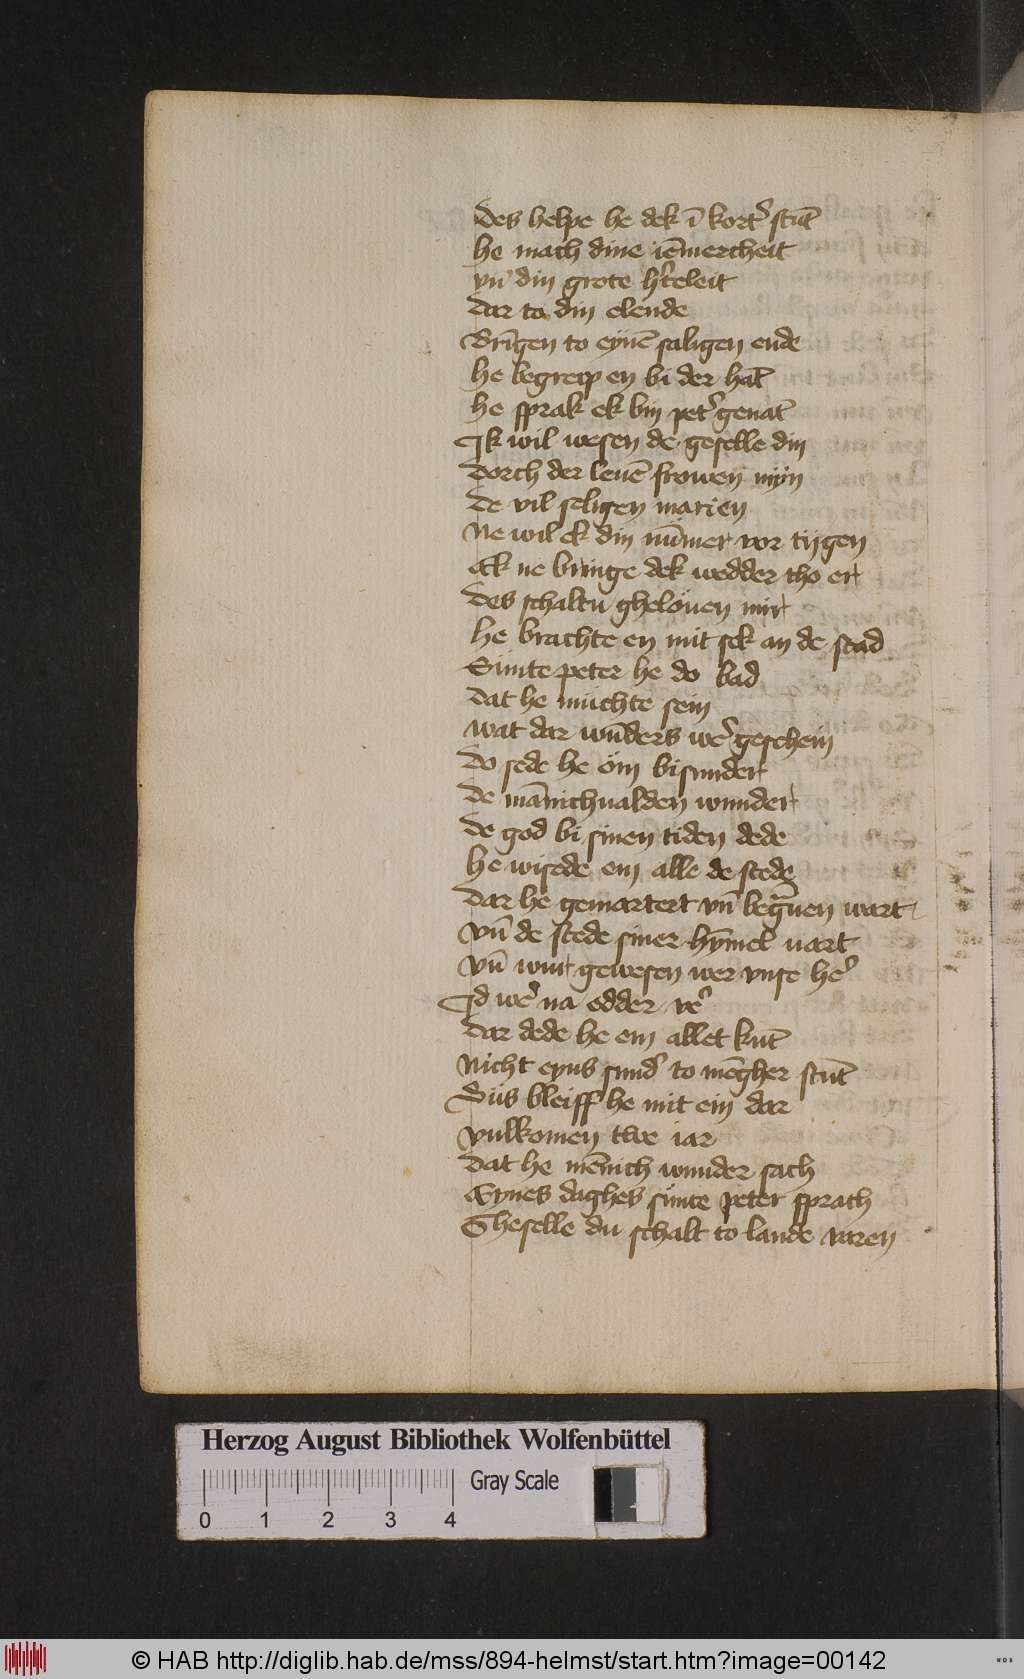 Des helpe he dek ī kort᷑ stūt
he mach dine iēmercheit
vn̄ din grote h᷑teleit
dar to din elende
Brīgen to eynē saligen ende
he begreip en bi der hāt
he sprak ek bin pet᷑ genāt
Ik wil wesen de geselle din
dorch der leuē frowen mÿn
de vil seligen marien
Ne wil ek din nūmer vor tijgen
Ek ne bringe dek wedder tho er
des schaltu ghelöuen mir
he brachte en mit sek an de stad
Sunte peter he do bad
dat he muchte sein
wat dar wūders we᷑ geschein
do sede he öm bisunder
de mānichualden wunder
de god bi sinen tiden dede
he wisede em alle de stede
dar he gemartert vn̄ begūen wart
vn̄ de stede siner hȳmel uart
vn̄ wur gewesen wer vnse he᷑
Id we᷑ na edder ve᷑
dar dede he em allet kūt
Nicht eyns sund᷑ to mēgher stūt
Düs bleiff he mit em dar
vulkomen twe iar
dat he mēnich wunder sach
Eynes daghes sunte peter sprach
Gheselle du schalt to lande varen
Herzog August Bibliothek Wolfenbüttel
Gray Scale
0 1 2 3 4
© HAB http://diglib.hab.de/mss/894-helmst/start.htm?image=00142